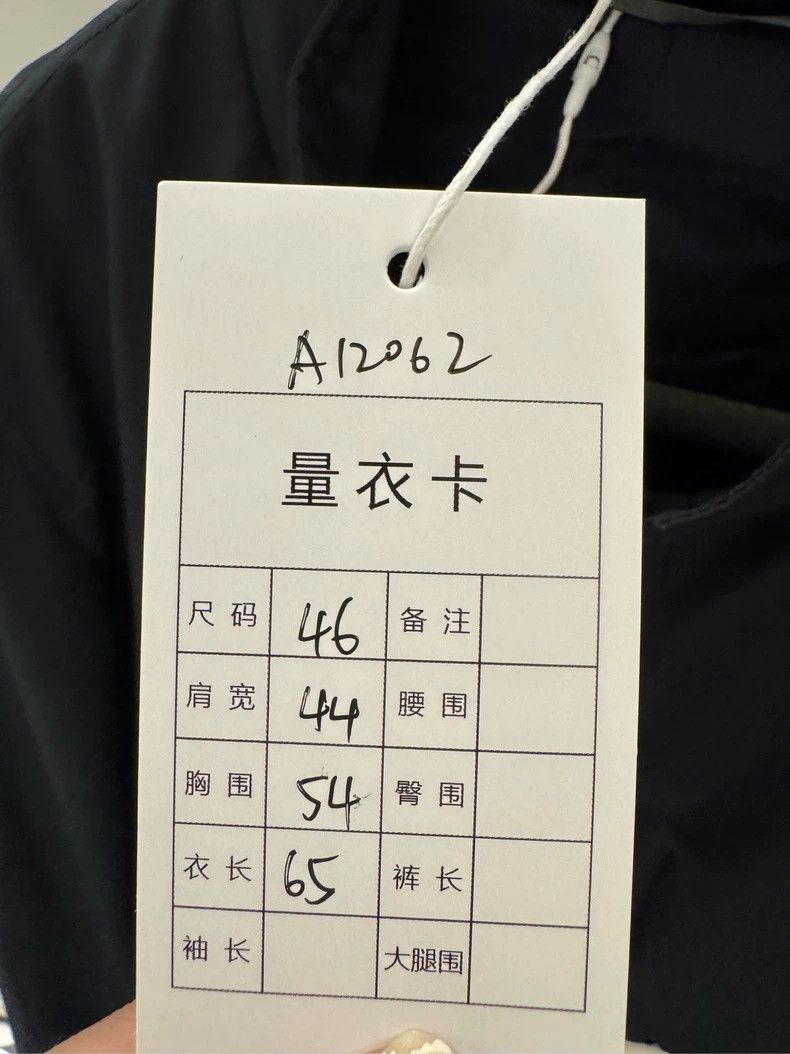 C
A12062
量衣卡
尺码 46 备注
肩宽 44 腰围
胸围 54 臀围
衣长 65 裤长
袖长 大腿围